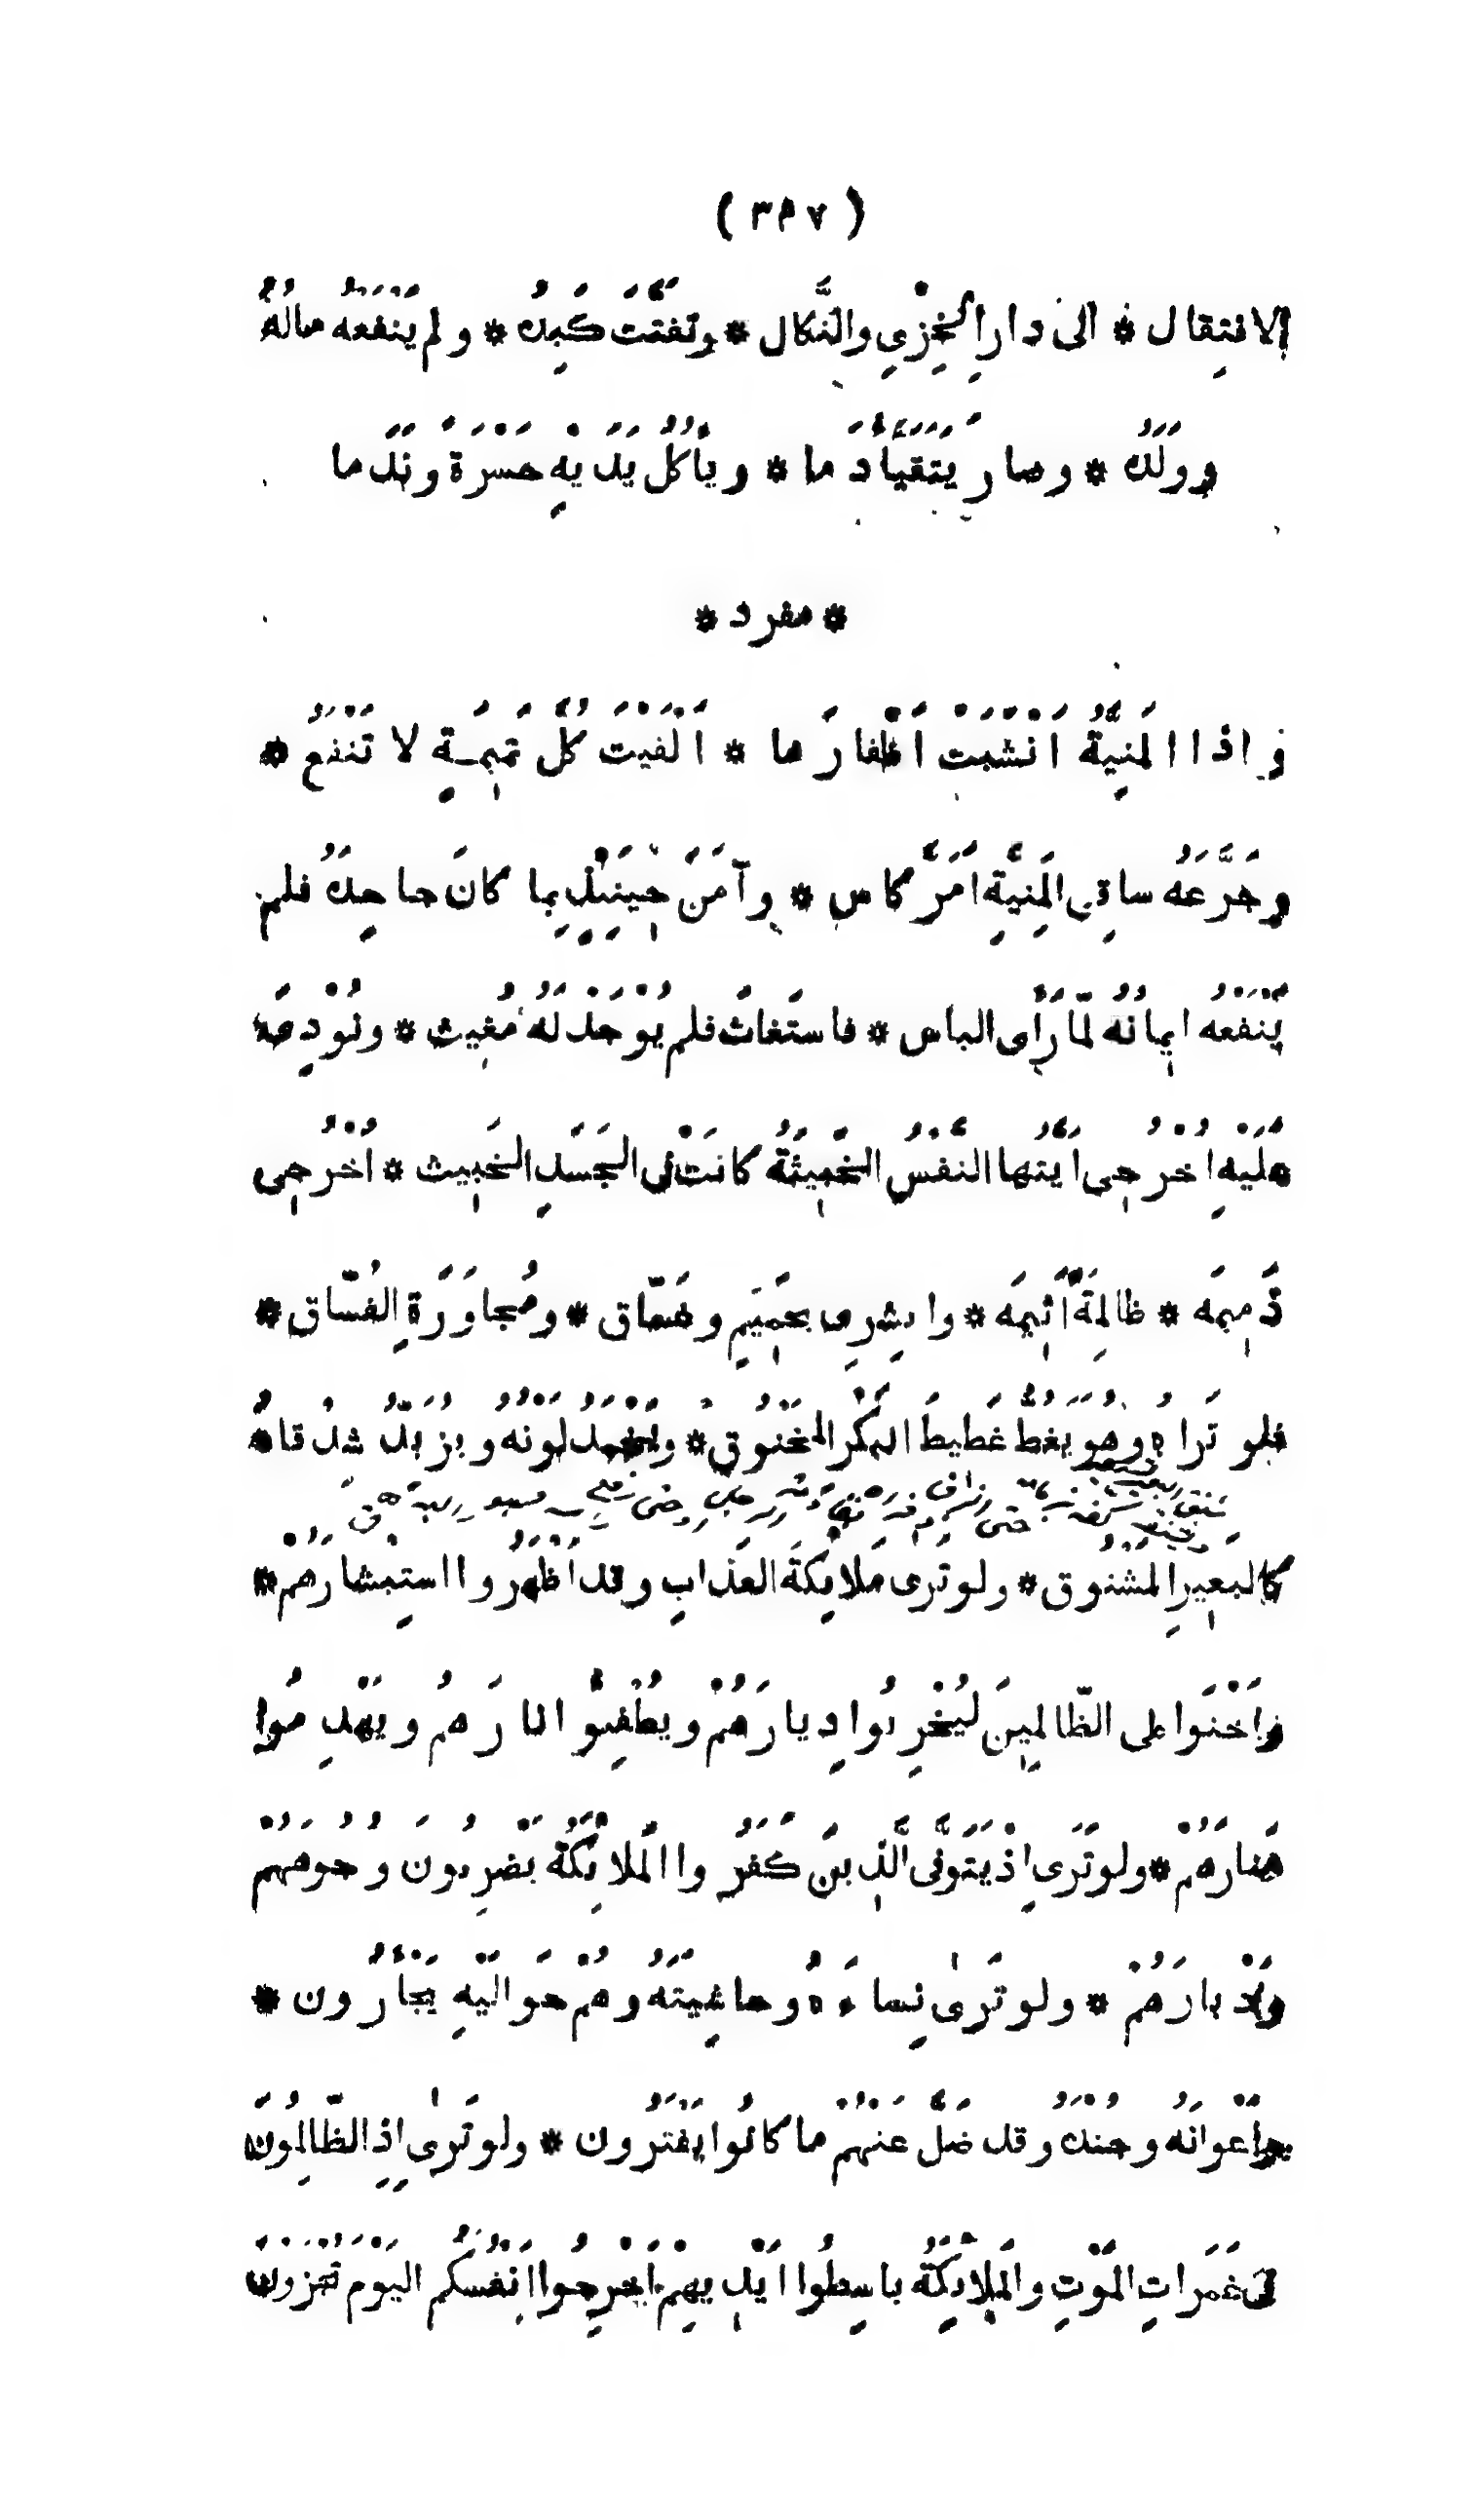 (٣٥٧)
الانتِقال * الى دارِ الخِزْيِ والنَّكال * وتَفتَّتَ كَبِدُه * ولم يَنْفَعْهُ مالُهُ
ووَلَدُه * وصارَ يَتَقَيَّأُ دَما * ويأكُلُ يَدَيْهِ حَسْرَةً ونَدَما
* مفرد *
واذا المَنِيَّةُ اَنْشَبَتْ اَظْفارَها * اَلْفَيْتَ كُلَّ تَمِيمَةٍ لا تَنْفَعُ *
وجَرَّعَهُ ساقِي المَنِيَّةِ اَمَرَّ كاس * وآمَنَ حِينَئِذٍ بِما كانَ جاحِدَهُ فلم
يَنْفَعْهُ اِيمانُهُ لمّا رَأى الباس * فاستَغاثَ فلم يُوْجَدْ لَهُ مُغِيث * ونُوْدِيَ
عَلَيْهِ اُخْرُجِي اَيَّتها النَّفْسُ الخَبِيثَةُ كانَتْ في الجَسَدِ الخَبِيث * اُخْرُجِي
ذَمِيمَه * ظالِمَةً اَثِيمَه * وابشِرِي بحَمِيمٍ وغَسّاق * ومُجاوَرَةِ الفُسّاق *
فلو تَراهُ وهُوَ يَغُطُّ غَطِيطَ البَكْرِ المَخْنُوق * ويَخْمَدُ لَوْنُهُ ويُزْبِدُ شِدْقاهُ
كالبَعِيرِ المَشْنُوق * ولو تَرى مَلائِكَةَ العَذابِ وقد اَظْهَرُوا استِبْشارَهُمْ *
واَخْنَوا على الظّالِمِينَ لِيُخْرِبُوا دِيارَهُمْ ويُطْفِئُوا نارَهُم ويَهْدِمُوا
مَنارَهُمْ * ولو تَرَى اِذْ يَتَوَفَّى الَّذِينَ كَفَرُوا المَلائِكَةُ يَضْرِبُونَ وُجُوهَهُمْ
واَدْبارَهُمْ * ولو تَرى نِساءَهُ وحاشِيَتَهُ وهُمْ حَوالَيْهِ يَجْأَرُون *
واَعْوانَهُ وجُنْدَهُ وقد ضَلَّ عَنْهُمْ ما كانُوا يَفْتَرُون * ولو تَرى اِذِ الظّالِمُونَ
في غَمَراتِ المَوْتِ والمَلائِكَةُ باسِطُوا اَيْدِيهِمْ اَخْرِجُوا اَنْفُسَكُم اليَوْمَ تُجْزَوْنَ